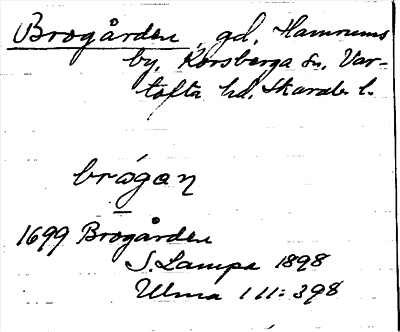 Brogården, gd, Hamrums
by, Korsberga sn, Var-
tofta hd, Skarab. l.
brógaṉ
1699 Brogården
S. Lampa 1898
Ulma 111:398